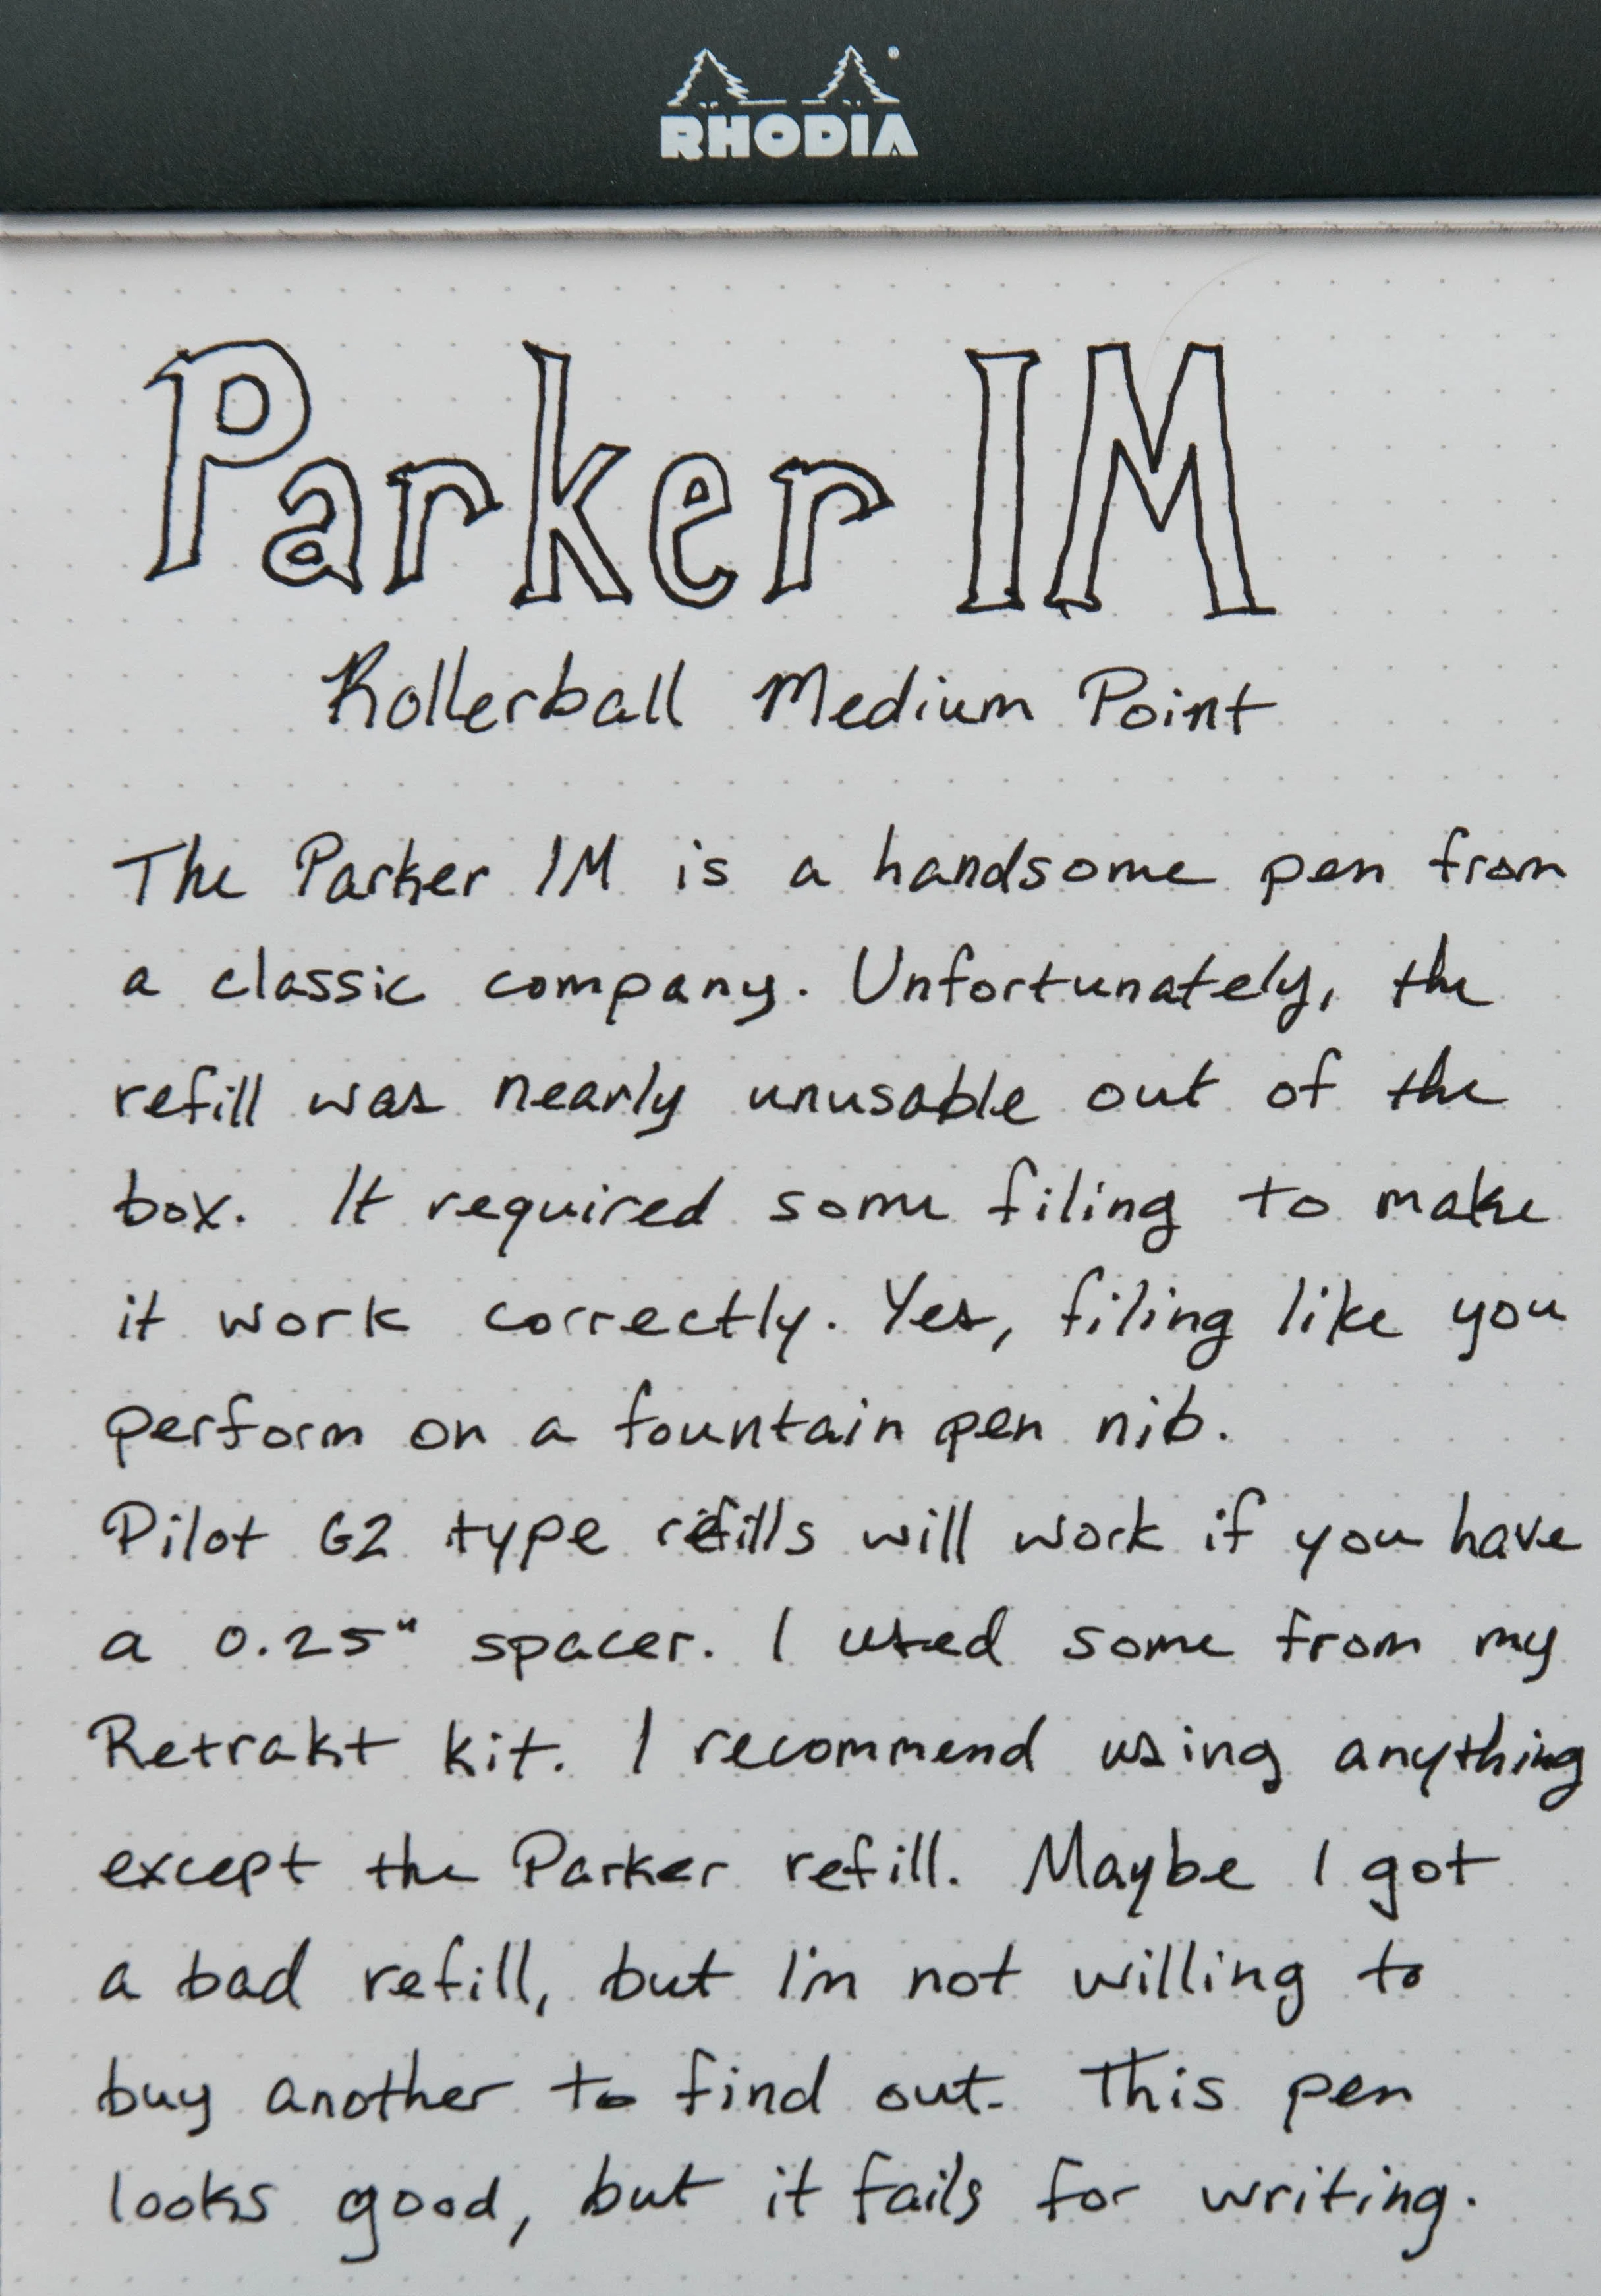 RHODIA
Parker IM
Rollerball Medium Point
The Parker IM is a handsome pen from
a classic company. Unfortunately, the
refill was nearly unusable out of the
box. It required some filing to make
it work correctly. Yes, filing like you
perform on a fountain pen nib.
Pilot G2 type refills will work if you have
a 0.25" spacer. I used some from my
Retrakt kit. I recommend using anything
except the Parker refill. Maybe I got
a bad refill, but I'm not willing to
buy another to find out. This pen
looks good, but it fails for writing.